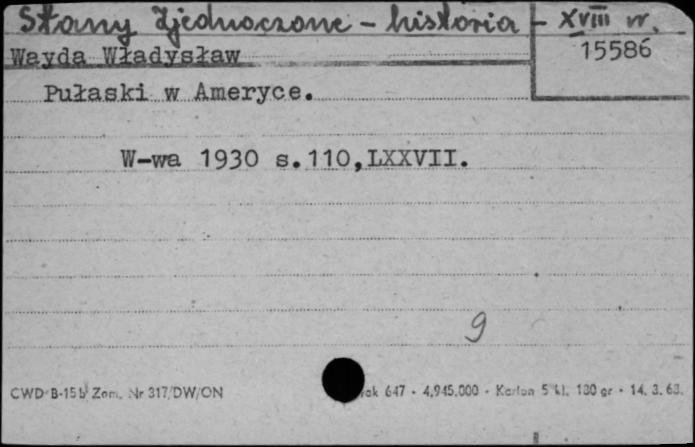 Stany Zjednoczone - historia - XVIII w.
Wayda Władysław
15586
Pułaski w Ameryce.
W-wa 1930 s.110,LXXVII.
9
CWD B-15b Zam. Nr 317/DW/ON
647 - 4,945.000 - Karton 5 kl. 180 gr - 14. 3. 63.